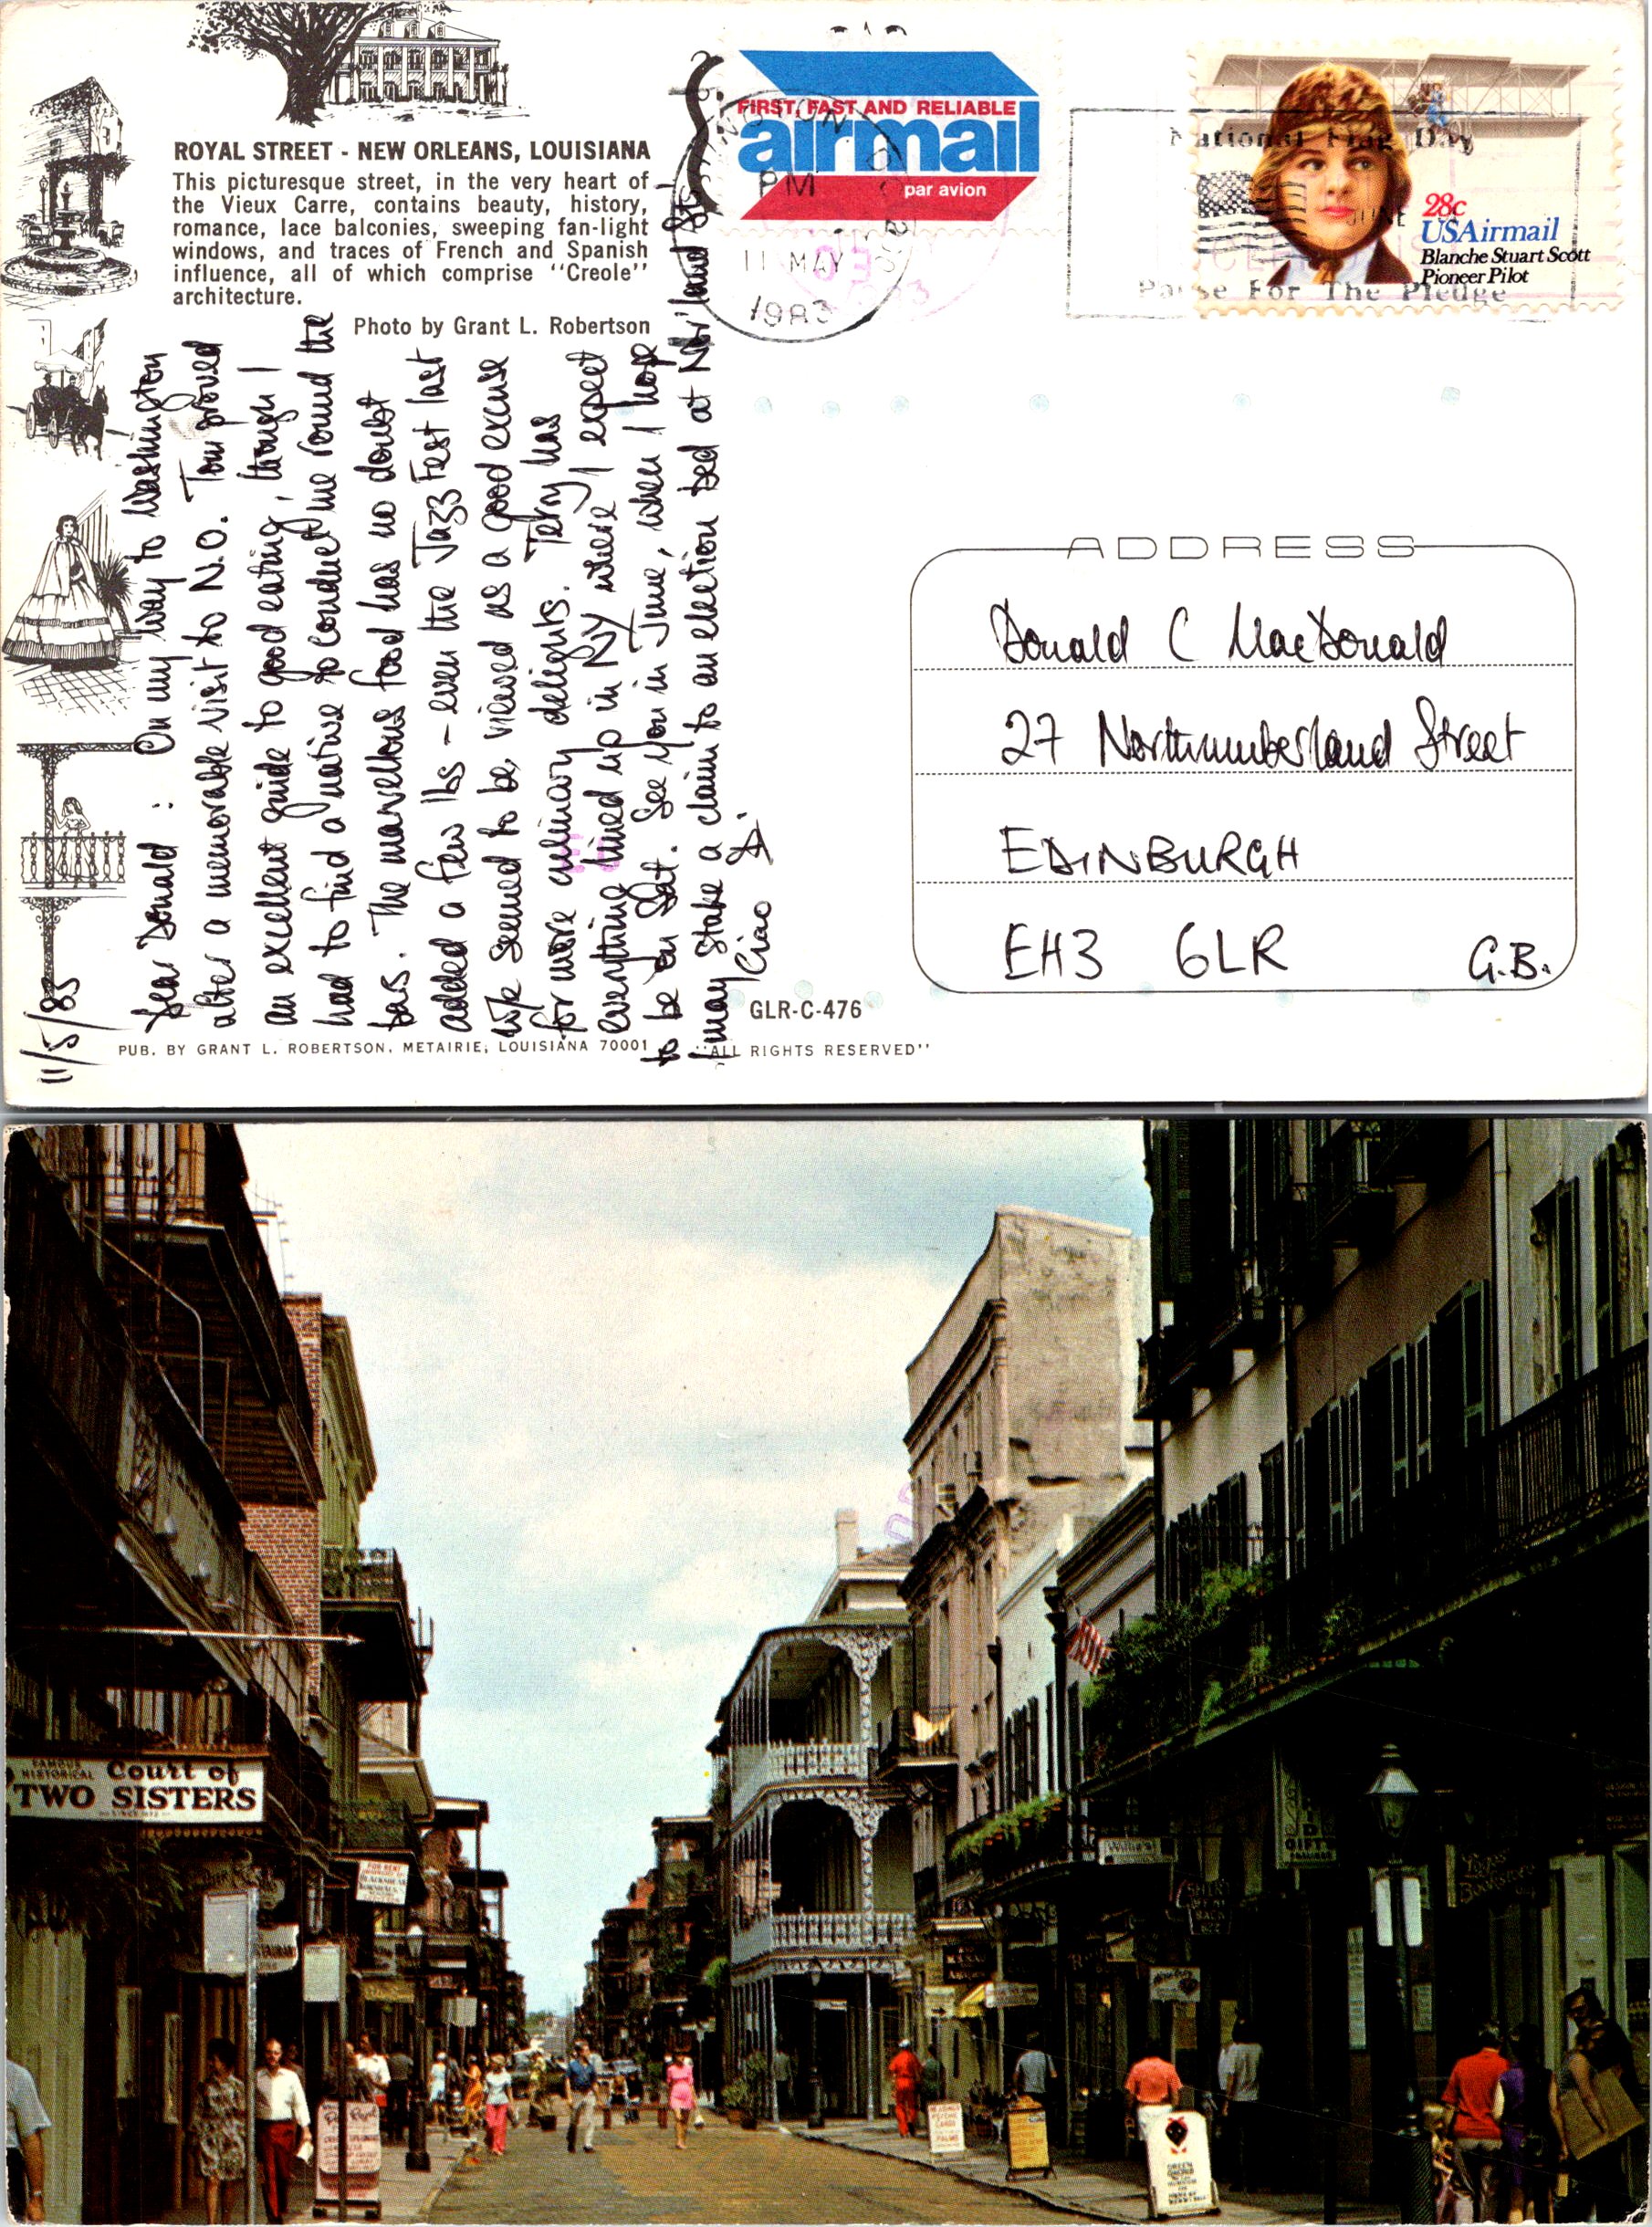 ROYAL STREET - NEW ORLEANS, LOUISIANA
This picturesque street, in the very heart of
the Vieux Carre, contains beauty, history,
romance, lace balconies, sweeping fan-light
windows, and traces of French and Spanish
influence, all of which comprise "Creole"
architecture.
Photo by Grant L. Robertson
FIRST, FAST AND RELIABLE
airmail
par avion
PM
11 MAY
1983
National Flag Day
JUNE
Pause For The Pledge
28c
USAirmail
Blanche Stuart Scott
Pioneer Pilot
11/5/83
Dear Donald : On my way to Washington
after a memorable visit to N.O. Tom proved
an excellent guide to good eating, though I
had to find a native to conduct me round the
bars. The marvellous food has no doubt
added a few lbs - even the Jazz Fest last
w/e seemed to be viewed as a good excuse
for more culinary delights. Terry has
everything lined up in NY where I expect
to be on Sat. See you in June, when I hope
I may stake a claim to an election bed at Nor'land St.
Ciao D.
ADDRESS
Donald C MacDonald
27 Northumberland Street
EDINBURGH
EH3 6LR G.B.
GLR-C-476
PUB. BY GRANT L. ROBERTSON, METAIRIE, LOUISIANA 70001 "ALL RIGHTS RESERVED"
FAMOUS
HISTORICAL Court of
TWO SISTERS
FOR RENT